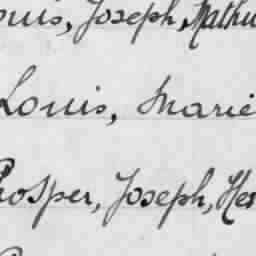 Louis, Joseph, Mathu
Louis, Marie
Prosper, Joseph, Hen